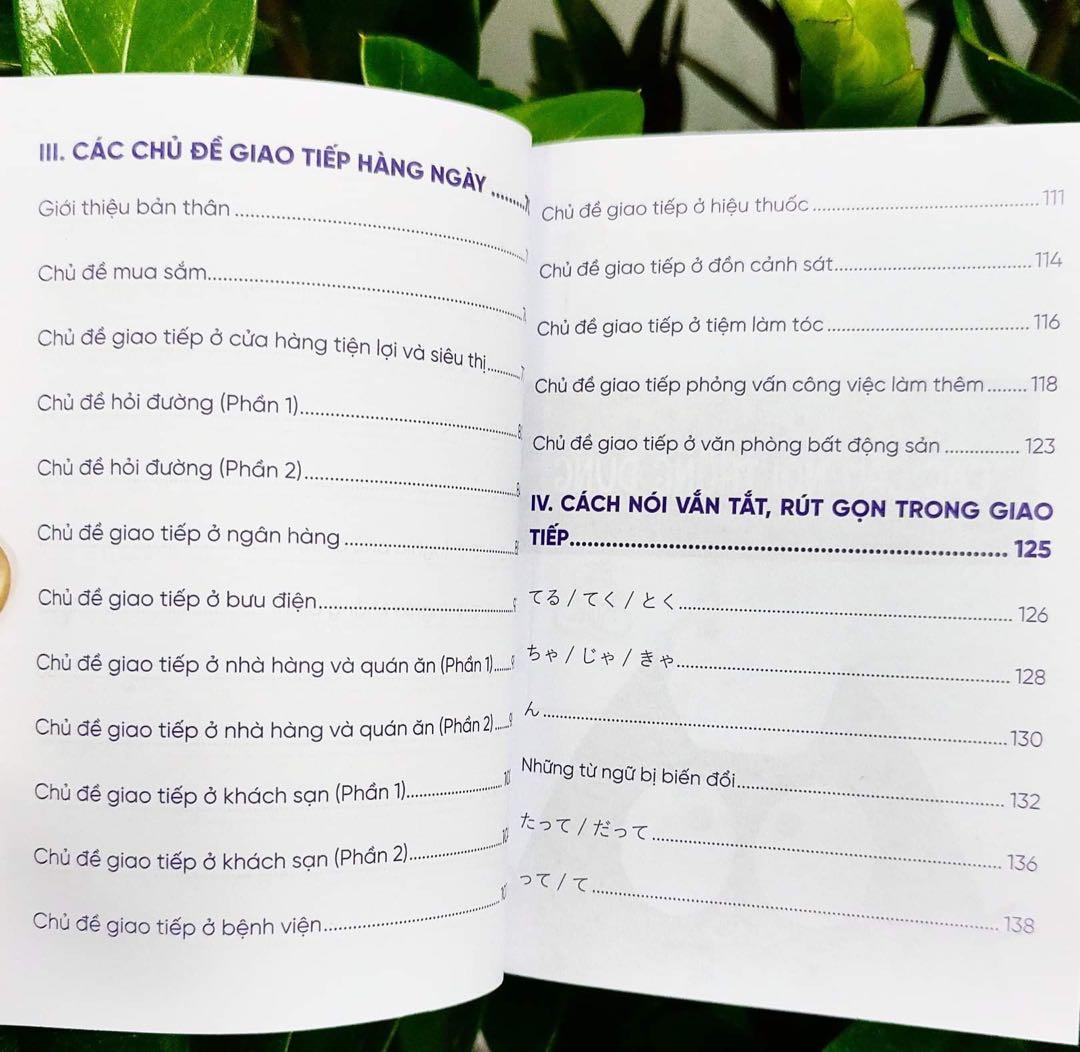 III. CÁC CHỦ ĐỀ GIAO TIẾP HÀNG NGÀY
Giới thiệu bản thân
Chủ đề mua sắm
Chủ đề giao tiếp ở cửa hàng tiện lợi và siêu thị
Chủ đề hỏi đường (Phần 1)
Chủ đề hỏi đường (Phần 2)
Chủ đề giao tiếp ở ngân hàng
Chủ đề giao tiếp ở bưu điện
Chủ đề giao tiếp ở nhà hàng và quán ăn (Phần 1)
Chủ đề giao tiếp ở nhà hàng và quán ăn (Phần 2)
Chủ đề giao tiếp ở khách sạn (Phần 1)
Chủ đề giao tiếp ở khách sạn (Phần 2)
Chủ đề giao tiếp ở bệnh viện
Chủ đề giao tiếp ở hiệu thuốc 111
Chủ đề giao tiếp ở đồn cảnh sát 114
Chủ đề giao tiếp ở tiệm làm tóc 116
Chủ đề giao tiếp phỏng vấn công việc làm thêm 118
Chủ đề giao tiếp ở văn phòng bất động sản 123
IV. CÁCH NÓI VẮN TẮT, RÚT GỌN TRONG GIAO
TIẾP 125
てる / てく / とく 126
ちゃ / じゃ / きゃ 128
ん 130
Những từ ngữ bị biến đổi 132
たって / だって 136
って / て 138